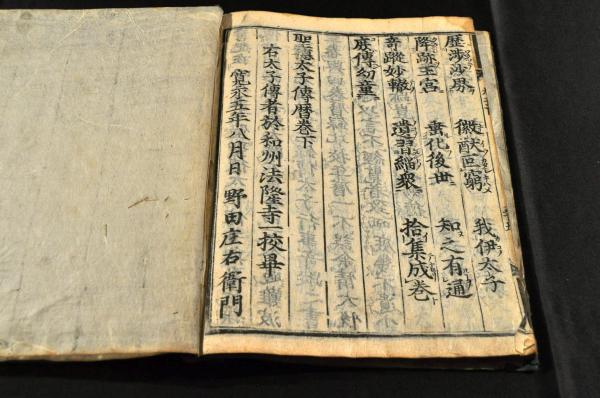 歴渉沙界 徽猷叵窮 我伊太子
降跡王宮 垂化後世 知之有通
奇蹤妙轍 遺習緇衆 拾集成卷
庶傳幼童
聖德太子傳暦巻下
右太子傳者於和州法隆寺一挍畢
寛永五年八月日 野田庄右衛門